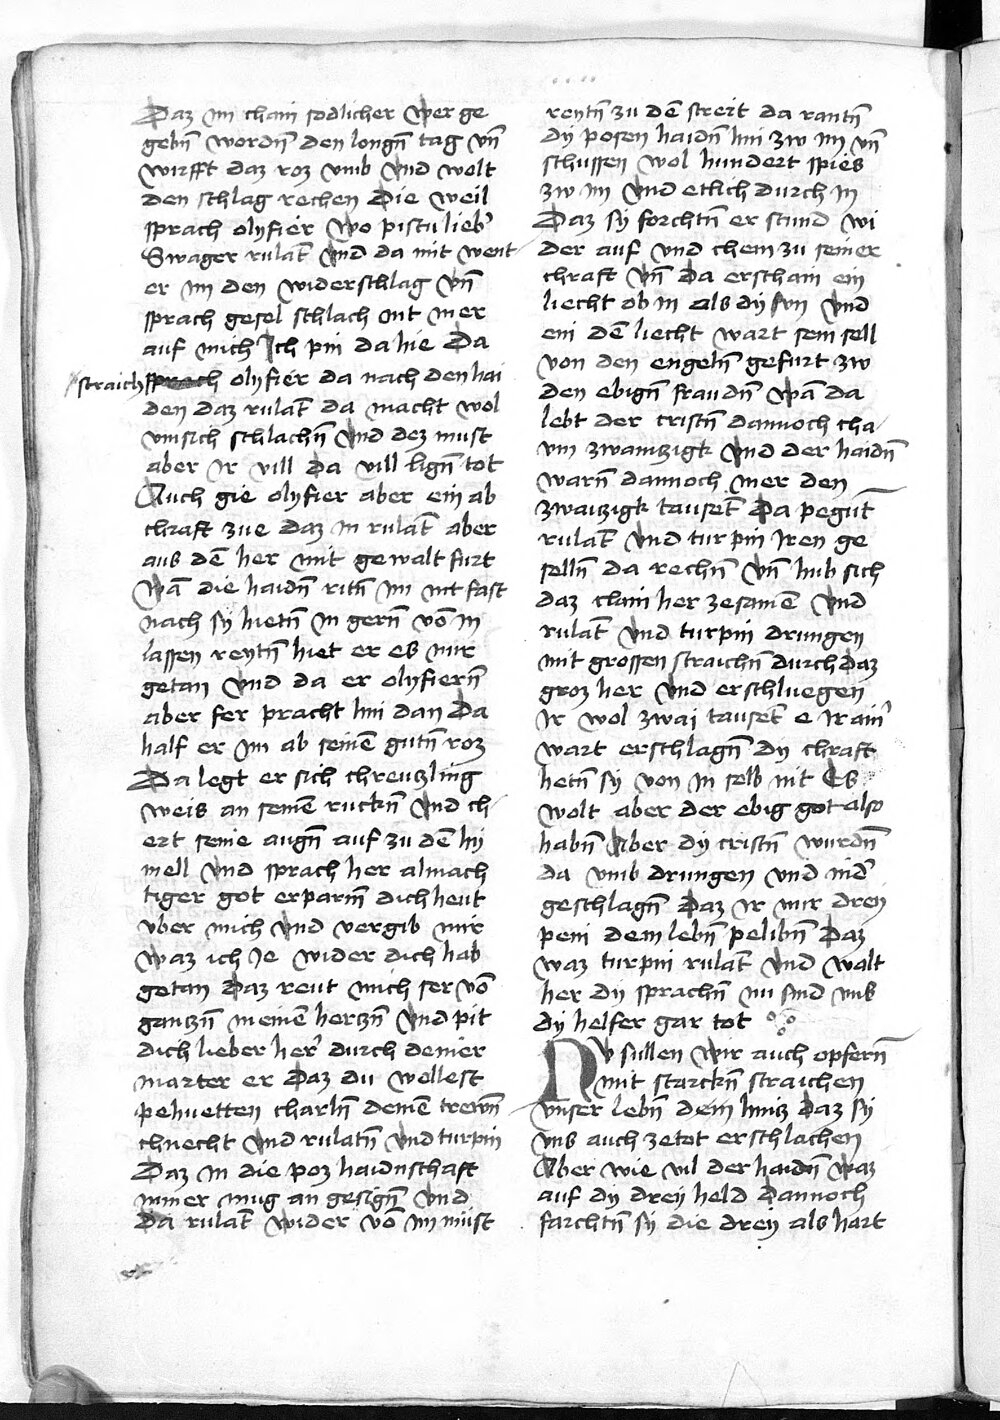 Daz im chain sodlicher wer ge
gebn̄ wordn̄ den longn̄ tag vn̄
wirfft daz roz vmb vnd wolt
den schlag rechen Die weil
sprach olyfier wo pistu lieb'
Swager rulāt vnd da mit went
er im den widerschlag vn̄
sprach gesel schlach nit mer
auf mich Ich pin da hie Da
straich olyfier da nach den hai
den daz rulāt da macht wol
vmsich schlachn̄ vnd dez must
aber ir vill da vill lign̄ tot
Auch gie olyfier aber ein ab
chraft zue daz in rulāt aber
aus dē her mit gewalt furt
wā die haidn̄ ritn̄ im nit fast
nach sy hietn̄ in gern̄ vō in
lassen reytn̄ hiet er es nur
getan vnd da er olyfiern̄
aber fer pracht hin dan Da
half er im ab seinē gutn̄ roz
Da legt er sich chreuzling
weis an seinē ruckn̄ vnd ch
ert seine augn̄ auf zu dē hi
mell vnd sprach her almach
tiger got erparm̄ dich heut
vber mich vnd vergib mir
waz ich Je wider dich hab
getan Daz reut mich ser vō
ganczn̄ meinē herczn̄ vnd pit
dich lieber her' durch deiner
marter er Daz du wellest
pehuetten charln̄ deinē trewn̄
chnecht vnd rulatn̄ vnd turpin
Daz in die poz haidnschaft
immer mug an gesign̄ vnd
Da rulāt wider vō im müst
reytn̄ zu dē streit da rantn̄
dy posen haidn̄ hin zw im vn̄
schussen wol hundert spies
zw im vnd etlich durch in
Daz sy forchtn̄ er stund wi
der auf vnd chem zu seiner
chraft vn̄ Da erschain ein
liecht ob in als dy sun vnd
ein dē liecht wart sein sell
von den engeln̄ gefurt zw
den ebign̄ fraudn̄ wā da
lebt der cristn̄ dannoch cha
vm zwainczigk vnd der haidn̄
warn̄ dannoch mer den
zwaiczigk tausēt Da pegūt
rulāt vnd turpin Iren ge
selln̄ da rechn̄ vn̄ hub sich
daz clain her zesamē vnd
rulāt vnd turpin drungen
mit grossen straichn̄ durch daz
groz her vnd erschluegen
Ir wol zwai tausēt e Ir ain'
wart erschlagn̄ dy chraft
hetn̄ sy von in selb nit Es
wolt aber der ebig got also
habn̄ Aber dy cristn̄ wurdn̄
da vmb drungen vnd nid'
geschlagn̄ Daz ir nur drey
peni dem lebn̄ pelibn̄ Daz
waz turpin rulāt vnd walt
her dy sprachn̄ nu sind vns
dy helfer gar tot
Nv sullen wir auch opfern̄
mit starckn̄ straichen
vnser lebn̄ dein hincz daz sy
vns auch zetot erschlachen
Aber wie vil der haidn̄ waz
auf dy drey held dannoch
farchtn̄ sy die drey als hart